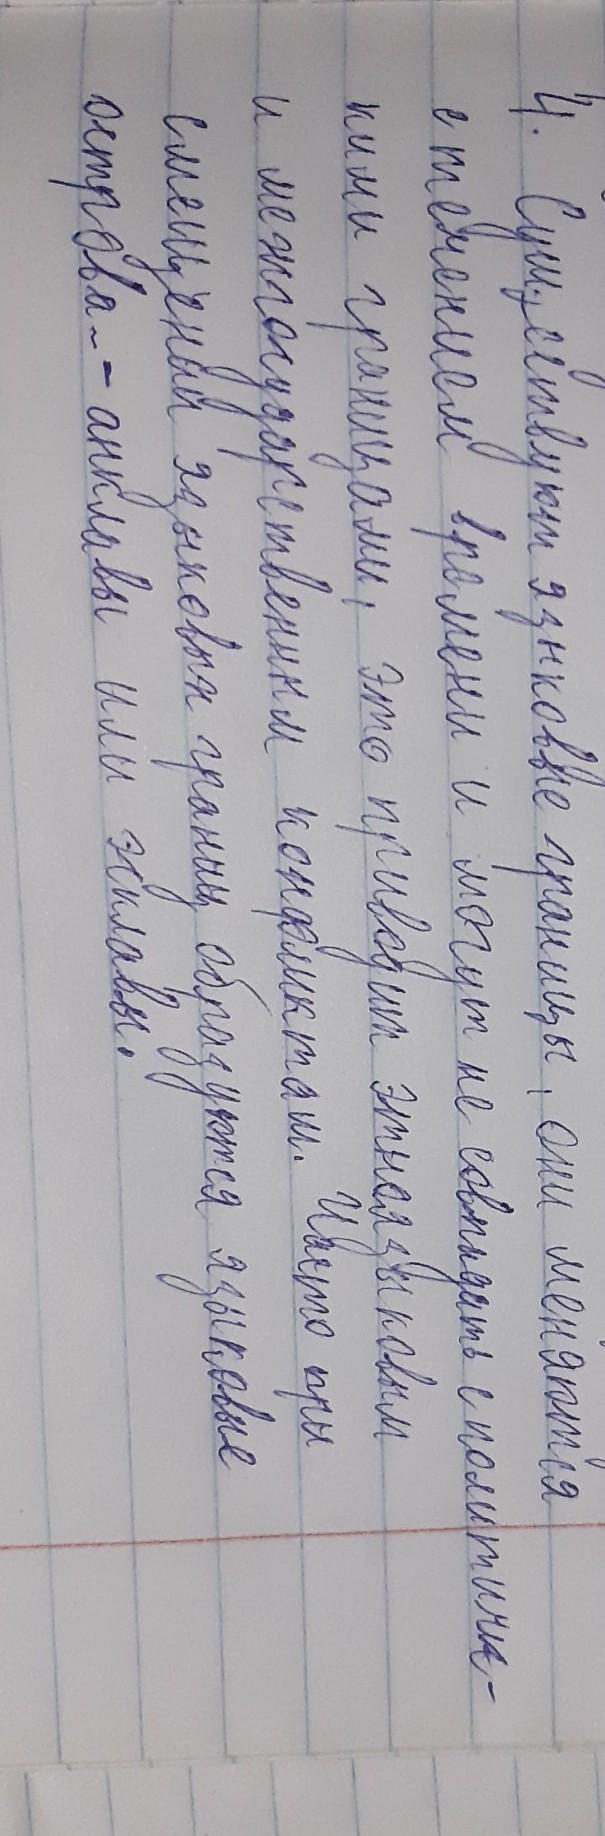 4. Существуют языковые границы, они меняются
с течением времени и могут не совпадать с политиче-
кими границами, это приводит этноязыковым
и межгосударственным конфликтам. Часто при
смещении языковых границ образуются языковые
острова - анклавы или эсклавы.